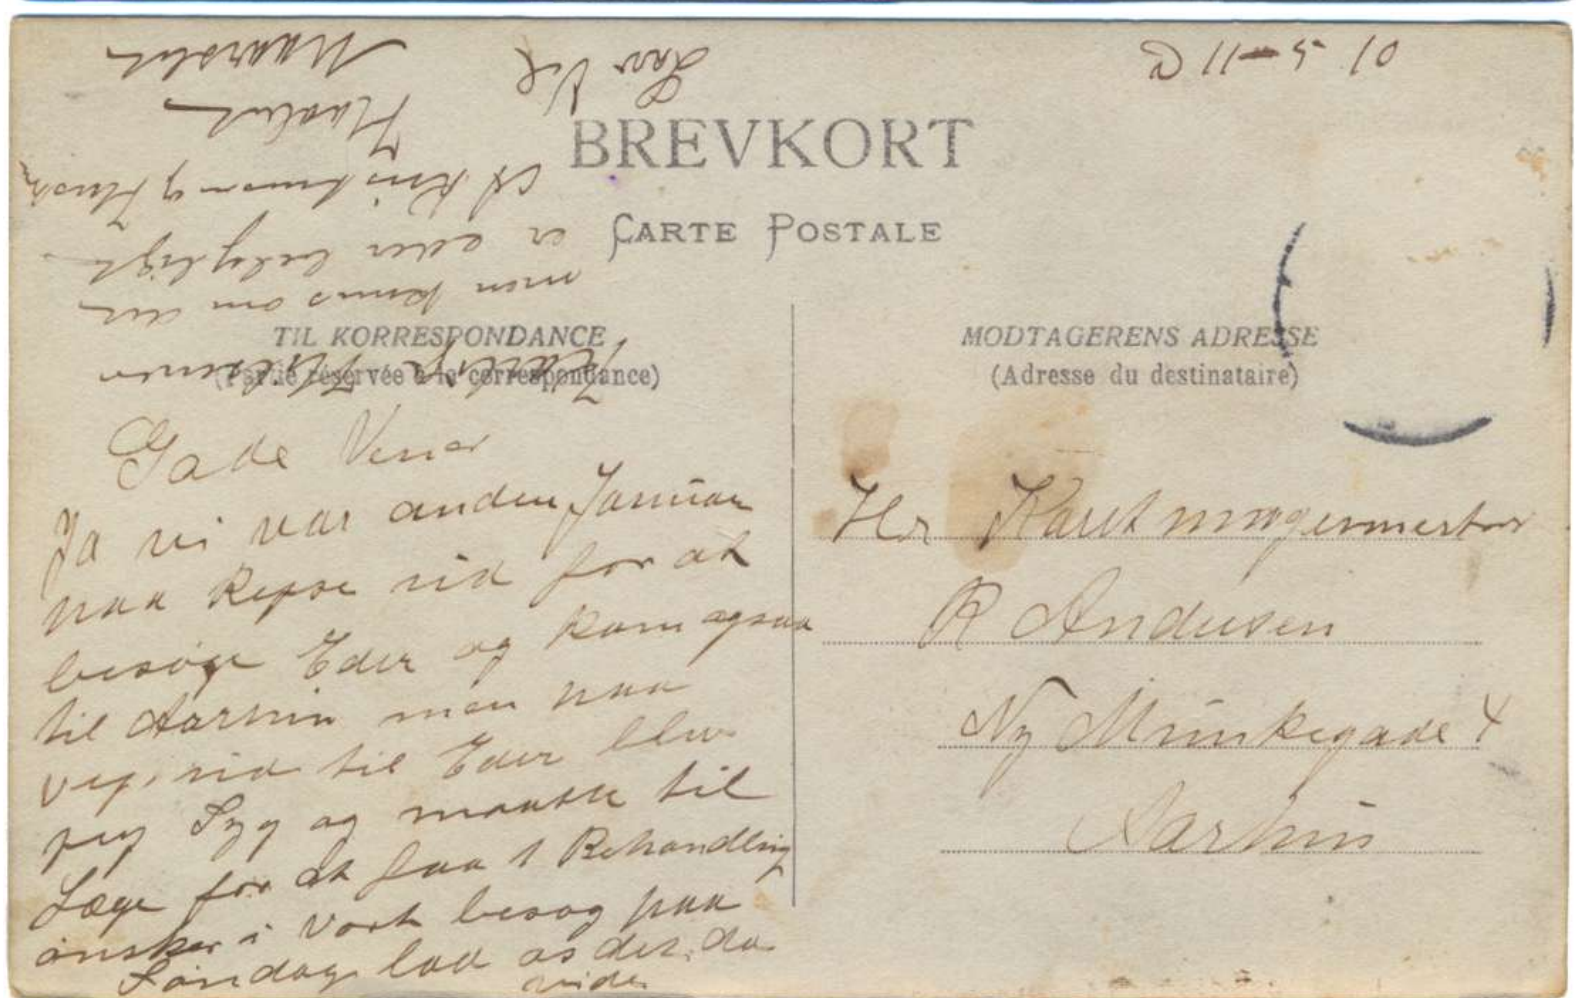 BREVKORT
CARTE POSTALE
TIL KORRESPONDANCE
(Partie réservée à la correspondance)
MODTAGERENS ADRESSE
(Adresse du destinataire)
Gode Venner
Ja vi var anden Januar
paa Rejse ind for at
besøge Eder og kom ogsaa
til Aarhus men paa
vej ind til Eder blev
jeg Syg og maatte til
Læge for at faa 1 Behandling
ønsker i vort besøg paa
Søndag lad os det da
vide
Hr Karetmagermester
R Andersen
Ny Munkegade 4
Aarhus
men kuns om det
er eder belejligt
A Kristensen og Hustru
Maarslet
Lev Vel